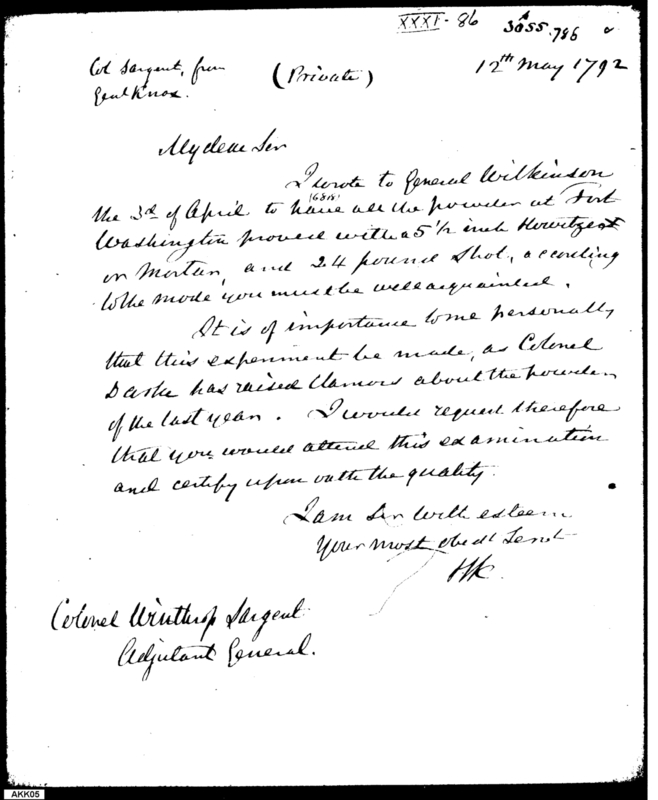 XXXI-86 3055.786
Col Sargent, from
Genl Knox.
(Private)
12th May 1792
My dear Sir
I wrote to General Wilkinson
the 3d of April to have all the powder at Fort
Washington proved with a 5 1/2 inch Howitzer
or Mortar, and 24 pound Shot, according
to the mode you must be well acquainted.
It is of importance to me personally
that this experiment be made, as Colonel
Darke has raised clamors about the powder
of the last year. I would request therefore
that you would attend this examination
and certify upon oath the quality.
I am Sir with esteem
Your most obedt Servt
HK.
Colonel Winthrop Sargent
Adjutant General.
AKK05